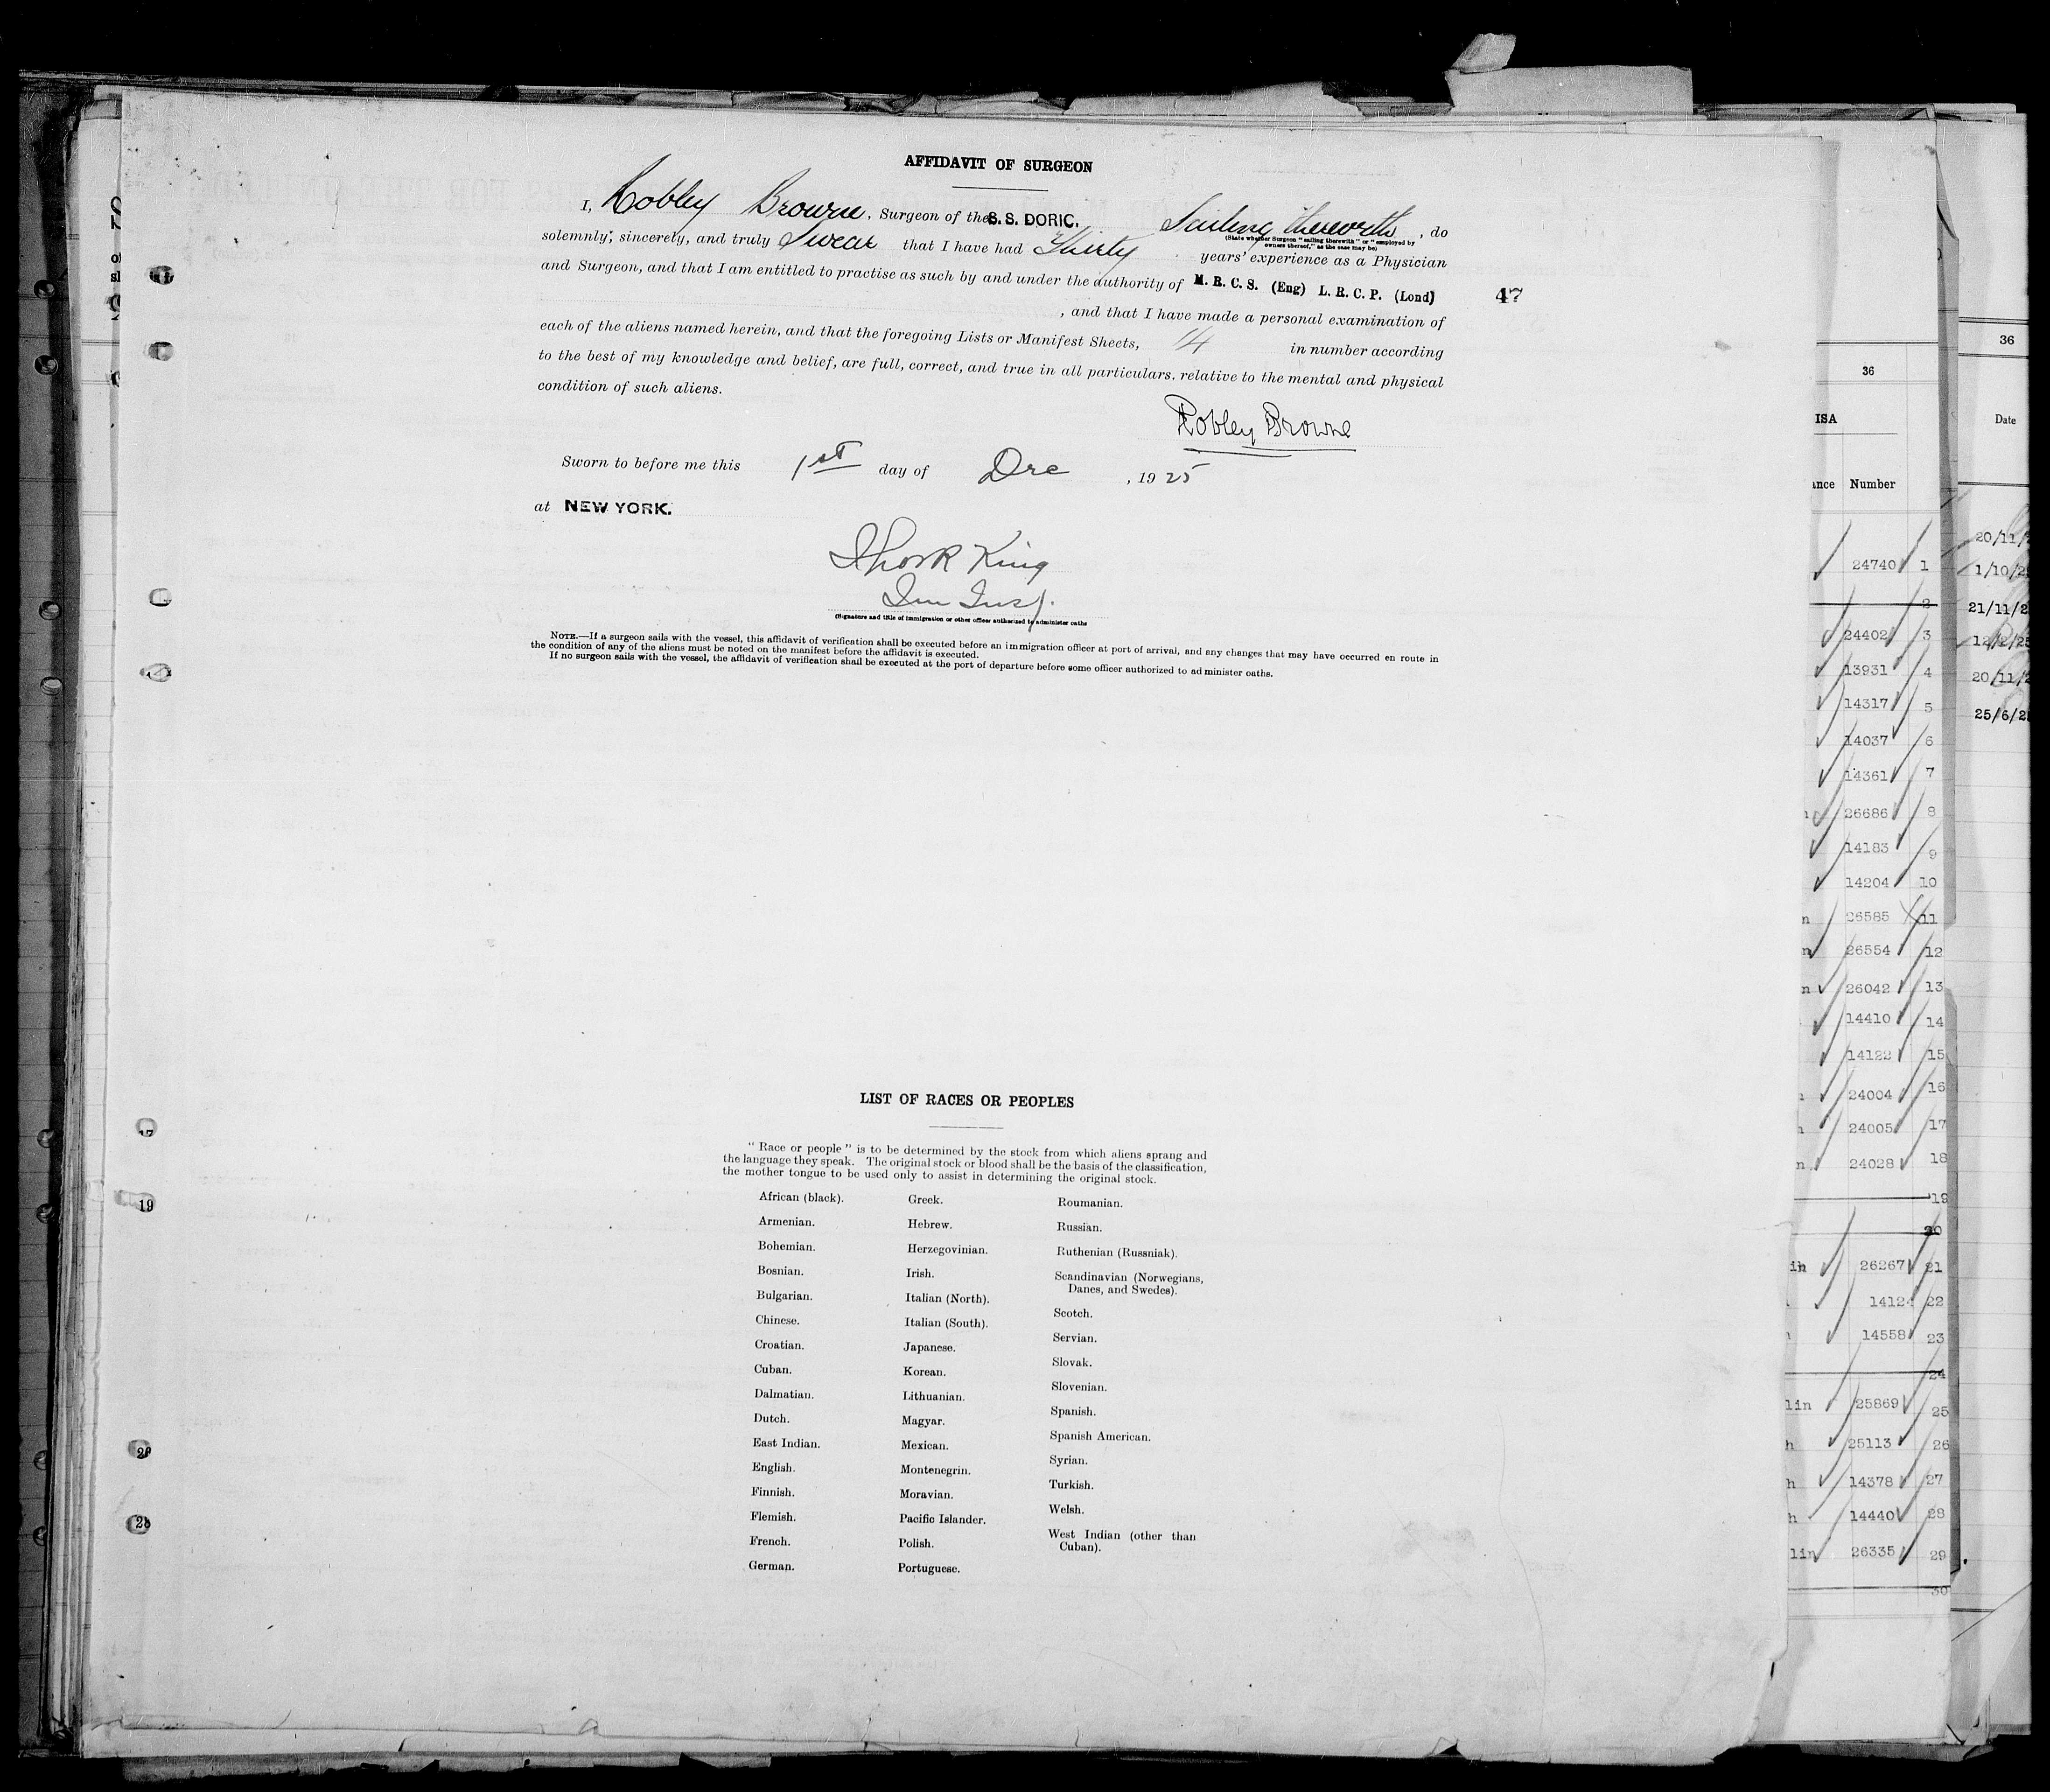 AFFIDAVIT OF SURGEON
I, Robley Browne, Surgeon of the S.S. DORIC. Sailing therewith, do
(State whether Surgeon "sailing therewith" or "employed by
owners thereof," as the case may be)
solemnly, sincerely, and truly Swear that I have had Thirty years' experience as a Physician
and Surgeon, and that I am entitled to practise as such by and under the authority of M. R. C. S. (Eng) L. R. C. P. (Lond)
47
, and that I have made a personal examination of
each of the aliens named herein, and that the foregoing Lists or Manifest Sheets, 14 in number according
to the best of my knowledge and belief, are full, correct, and true in all particulars, relative to the mental and physical
condition of such aliens.
Robley Browne
Sworn to before me this 1st day of Dec, 1925
at NEW YORK.
King
Imm Insp.
(Signature and title of immigration or other officer authorized to administer oaths
NOTE.—If a surgeon sails with the vessel, this affidavit of verification shall be executed before an immigration officer at port of arrival, and any changes that may have occurred en route in
the condition of any of the aliens must be noted on the manifest before the affidavit is executed.
If no surgeon sails with the vessel, the affidavit of verification shall be executed at the port of departure before some officer authorized to administer oaths.
LIST OF RACES OR PEOPLES
"Race or people" is to be determined by the stock from which aliens sprang and
the language they speak. The original stock or blood shall be the basis of the classification,
the mother tongue to be used only to assist in determining the original stock.
African (black).
Armenian.
Bohemian.
Bosnian.
Bulgarian.
Chinese.
Croatian.
Cuban.
Dalmatian.
Dutch.
East Indian.
English.
Finnish.
Flemish.
French.
German.
Greek.
Hebrew.
Herzegovinian.
Irish.
Italian (North).
Italian (South).
Japanese.
Korean.
Lithuanian.
Magyar.
Mexican.
Montenegrin.
Moravian.
Pacific Islander.
Polish.
Portuguese.
Roumanian.
Russian.
Ruthenian (Russniak).
Scandinavian (Norwegians,
Danes, and Swedes).
Scotch.
Servian.
Slovak.
Slovenian.
Spanish.
Spanish American.
Syrian.
Turkish.
Welsh.
West Indian (other than
Cuban).
17
19
26
28
36
ISA
ance Number
24740 1
2
24402 3
13931 4
14317 5
14037 6
14361 7
26686 8
14183 9
14204 10
26585 11
26554 12
26042 13
14410 14
14122 15
24004 16
24005 17
24028 18
19
20
26267 21
1412 22
14558 23
24
lin 25869 25
25113 26
14378 27
14440 28
lin 26335 29
30
36
Date
20/11/
1/10/2
21/11/2
12/2/25
20/11/2
25/6/2